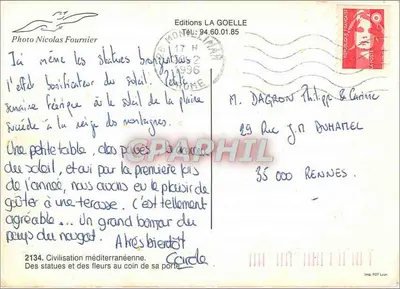 Photo Nicolas Fournier
Editions LA GOELLE
Tél.: 94.60.01.85
MONTELIMAR
17 H
1996
DROME
Ici même les statues
l'effet bonificateur du soleil. Petite
semaine féérique où le soleil de la plaine
succède à la neige des montagnes.
Une petite table, des pavés, la douceur
du soleil, et oui pour la première fois
de l'année, nous avons eu le plaisir de
goûter à une terrasse. C'est tellement
agréable... Un grand bonjour du
pays du nougat. A très bientôt
M. DAGRON Philippe &
29 Rue J.M DUHAMEL
35 000 RENNES.
CPAPHIL
2134. Civilisation méditerranéenne.
Des statues et des fleurs au coin de sa porte.